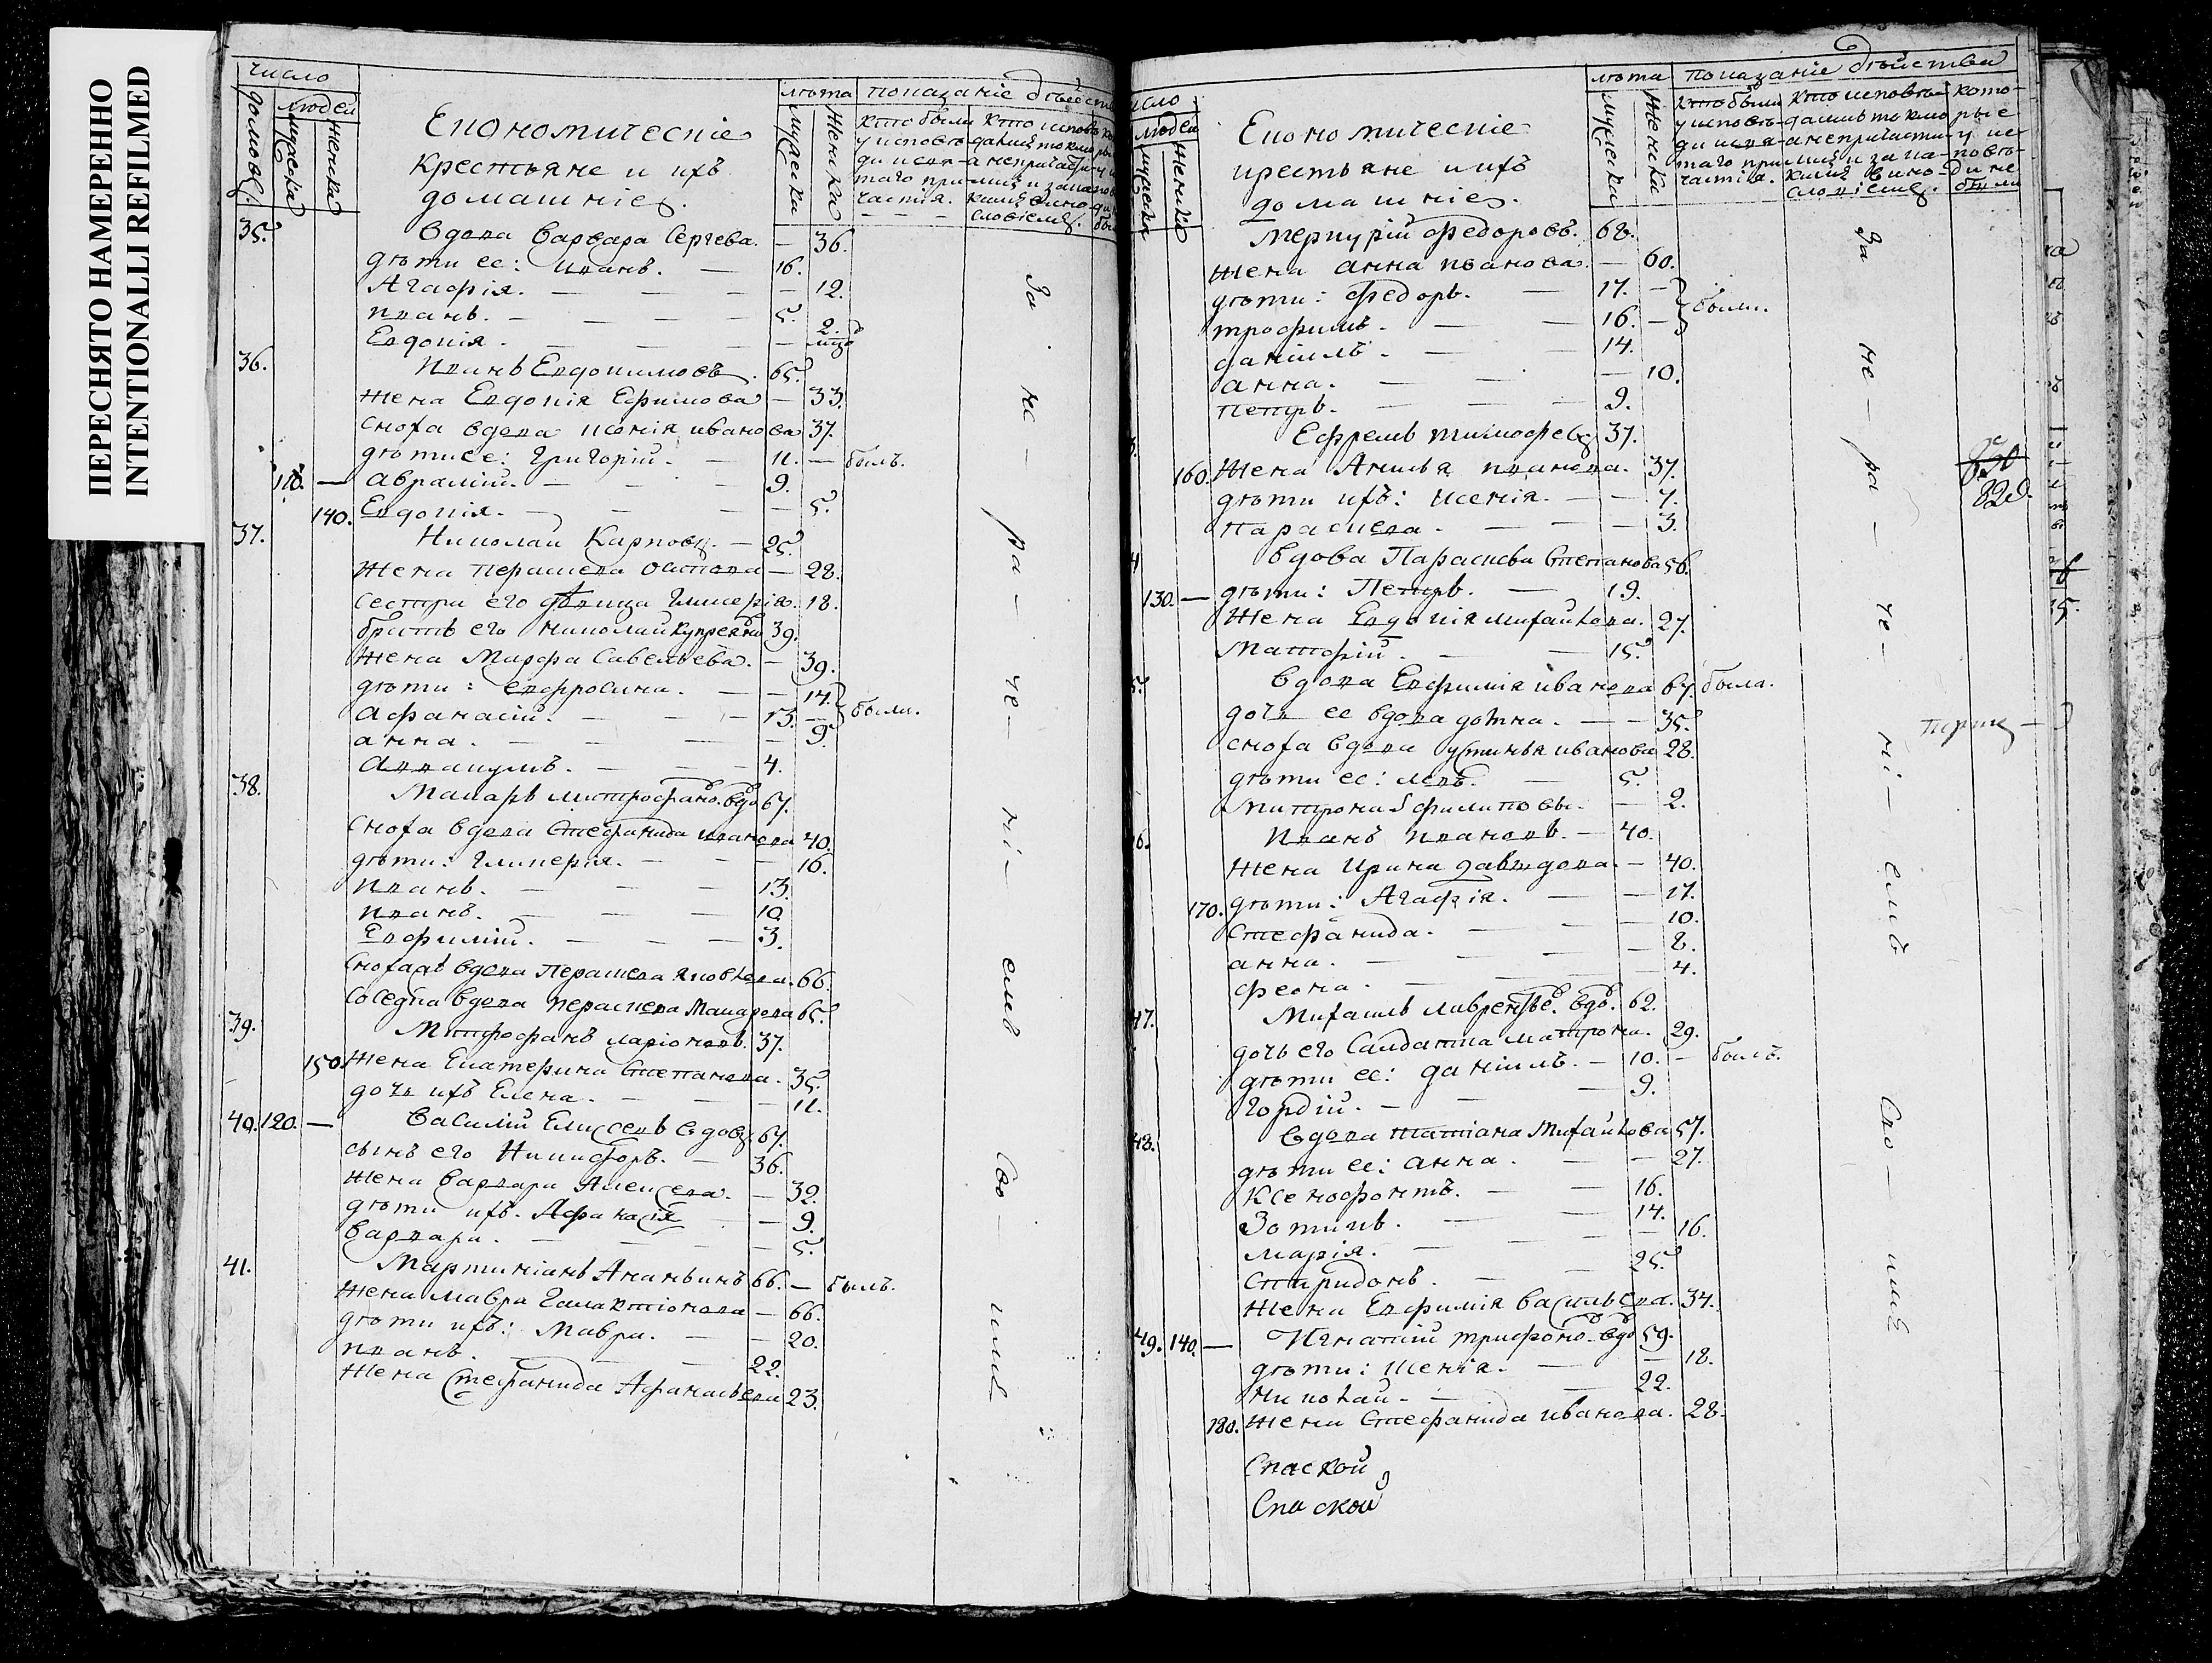 ПЕРЕСНЯТО НАМЕРЕННО
INTENTIONALLI REFILMED
число
домовъ.
людей
мужеска
женска
Економическіе
крестьяне и ихъ
домашніе.
лѣта
мужеска
женска
показаніе
кто были
у исповѣ-
ди и свя-
таго при-
частія.
35. вдова варвара Сергева. — 36.
дѣти ее: иванъ. — 16.
Агафія. — 12.
иванъ. — 5.
Евдокія. — 2.
36. иванъ Евдокимовъ. 65.
жена Евдокія Ефимова — 33.
сноха вдова ксенія иванова 37.
дѣти ее: Григорій. — 11. — былъ.
110. — аврамій. — 9.
140. Евдокія. — 5.
37. Николай Карповъ. — 25.
жена Пераскева — 28.
сестра его дѣвица Гликерія. 18.
братъ его николай 39.
жена Марфа Савельева. — 39.
дѣти: ефросинья. — 14.
афанасій. — 13. — были.
анна. — 9.
аввакумъ. — 4.
38. Макаръ митрофано. вдо 67.
сноха вдова Стефанида иванова 40.
дѣти: Гликерія. — 16.
иванъ. — 13.
иванъ. — 10.
Евфимій. — 3.
вдова Пераскева яковлева. 66.
соседка вдова пераскева Макарова 65.
39. Митрофанъ ларіоновъ. 37.
150. жена Екатерина Степанова. 35.
дочь ихъ Елена. — 11.
40. 120. — Василій Елисеевъ вдовъ 67.
сынъ его Никифоръ. — 36.
жена варвара Алексева. — 32.
дѣти ихъ. Афанасія — 9.
варвара. — 5.
41. Мартиніанъ Ананьинъ 66. — былъ.
жена мавра Галактіонова — 66.
дѣти ихъ: Мавра. — 20.
иванъ. — 22.
жена Стефанида Афанасьева 23.
За — не — ра — че — ні — емъ Сво — имъ
число
людей
мужеска
женска
Економическіе
крестьяне и ихъ
домашніе.
лѣта
мужеска
женска
показаніе дѣйства
кто были
у исповѣ-
ди и свя-
таго при-
частія.
кто исповѣ-
дались токмо
а не причасти-
лись и за ка-
кимъ вино-
словіемъ.
кото-
рые
у ис-
повѣ-
ди не
были
меркурій федоровъ. 68.
жена анна иванова. — 60.
дѣти: федоръ. — 17. —
трофимъ. — 16. — были.
даніилъ. — 14.
анна. — 10.
петръ. — 9.
Ефремъ тимофеевъ 37.
160. жена Акилья иванова. 37.
дѣти ихъ: ксенія. — 7.
параскева. — 3.
вдова Параскева Степанова 56.
130. — дѣти: Петръ. — 19.
жена Евдокія михайлова. 27.
Матфій. — 15.
вдова Евфимія иванова 67. была.
дочь ее вдова домна. — 35.
сноха вдова устинья иванова 28.
дѣти ее: левъ. — 5.
Митрона филиповы. — 2.
46. иванъ ивановъ. — 40.
жена Ирина давыдова. — 40.
170. дѣти: Агафія. — 17.
Стефанида. — 10.
анна. — 8.
феона. — 4.
47. Михаилъ лаврентье. вдо. 62.
дочь его Салдатка матрона. 29.
дѣти ее: даніилъ. — 10. — былъ.
Гордій. — 9.
48. вдова татіана Михайлова 57.
дѣти ее: анна. — 27.
Ксенофонтъ. — 16.
Зотикъ. — 14.
марія. — 16.
Спиридонъ. — 25.
жена Евфимія васильева. 34.
49. 140. — Игнатій трифоно. вдо 59.
дѣти: ксенія. — 18.
николай. — 22.
180. жена Стефанида иванова. 28.
Спаской
Спаской
За — не — ра — че — ні — емъ Сво — имъ
820.